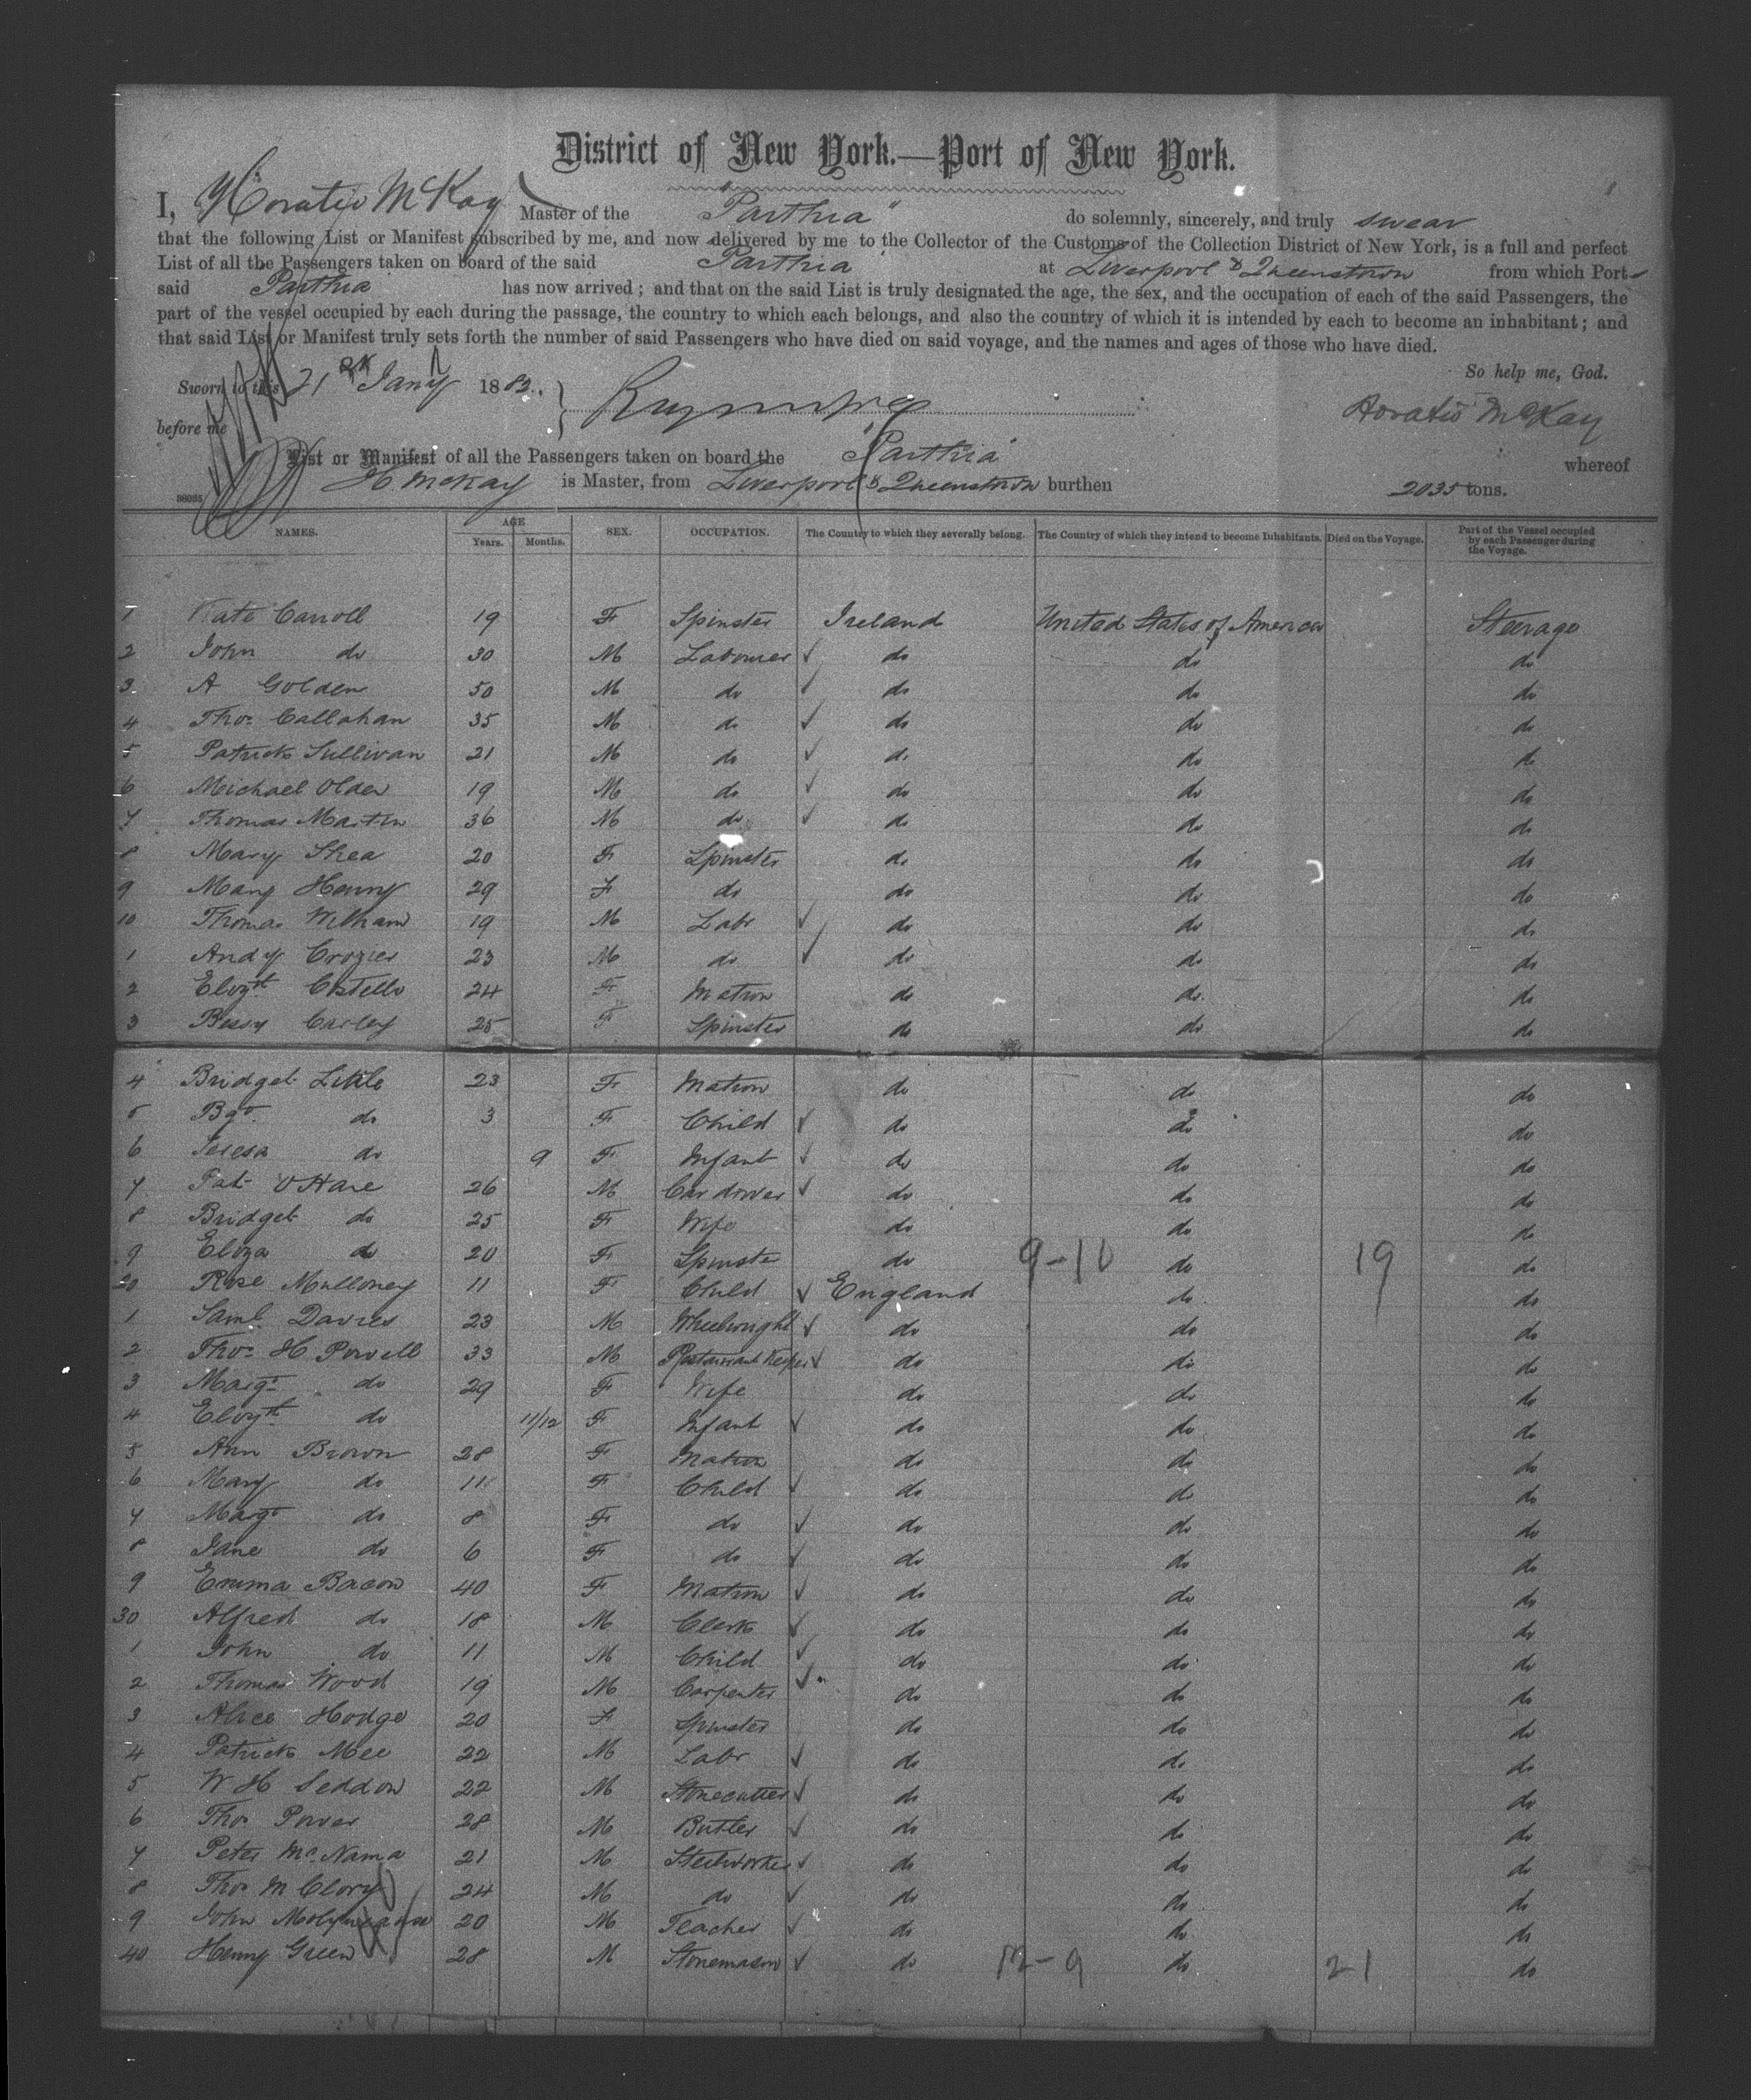 District of New York.—Port of New York.
I, Horatio McKay Master of the "Parthia" do solemnly, sincerely, and truly swear
that the following List or Manifest subscribed by me, and now delivered by me to the Collector of the Customs of the Collection District of New York, is a full and perfect
List of all the Passengers taken on board of the said Parthia at Liverpool & Queenstown from which Port
said Parthia has now arrived; and that on the said List is truly designated the age, the sex, and the occupation of each of the said Passengers, the
part of the vessel occupied by each during the passage, the country to which each belongs, and also the country of which it is intended by each to become an inhabitant; and
that said List or Manifest truly sets forth the number of said Passengers who have died on said voyage, and the names and ages of those who have died.
So help me, God.
Sworn to this 21 Jany 1882.
before me
Horatio McKay
List or Manifest of all the Passengers taken on board the "Parthia" whereof
H McKay is Master, from Liverpool & Queenstown burthen 2035 tons.
NAMES. AGE Years. Months. SEX. OCCUPATION. The Country to which they severally belong. The Country of which they intend to become Inhabitants. Died on the Voyage. Part of the Vessel occupied by each Passenger during the Voyage.
1 Kate Carroll 19 F Spinster Ireland United States of America Steerage
2 John do 30 M Labourer do do do
3 A Golden 50 M do do do do
4 Thos Callahan 35 M do do do do
5 Patrick Sullivan 21 M do do do do
6 Michael Olden 19 M do do do do
7 Thomas Martin 36 M do do do do
8 Mary Shea 20 F Spinster do do do
9 Mary Henry 29 F do do do do
10 Thomas William 19 M Labr do do do
1 Andy Crozier 23 M do do do do
2 Elizth Costello 24 F Matron do do do
3 Bessy Carley 25 F Spinster do do do
4 Bridget Little 23 F Matron do do do
5 Bgt do 3 F Child do do do
6 Teresa do 9 F Infant do do do
7 Pat O'Hare 26 M Car driver do do do
8 Bridget do 25 F Wife do do do
9 Eliza do 20 F Spinster do 9-10 do 19 do
20 Rose Mulloney 11 F Child England do do
1 Saml Davies 23 M Wheelwright do do do
2 Thos H Powell 33 M Restaurant Keeper do do do
3 Margt do 29 F Wife do do do
4 Elizth do 11/12 F Infant do do do
5 Ann Brown 28 F Matron do do do
6 Mary do 11 F Child do do do
7 Margt do 8 F do do do do
8 Jane do 6 F do do do do
9 Emma Bacon 40 F Matron do do do
30 Alfred do 18 M Clerk do do do
1 John do 11 M Child do do do
2 Thomas Wood 19 M Carpenter do do do
3 Alice Hodge 20 F Spinster do do do
4 Patrick Mee 22 M Labr do do do
5 W H Seddon 22 M Stonecutter do do do
6 Thos Power 28 M Butler do do do
7 Peter McNama 21 M Steelworker do do do
8 Thos McClory 24 M do do do do
9 John 20 M Teacher do do do
40 Henry Green 28 M Stonemason do 12-9 do 21 do